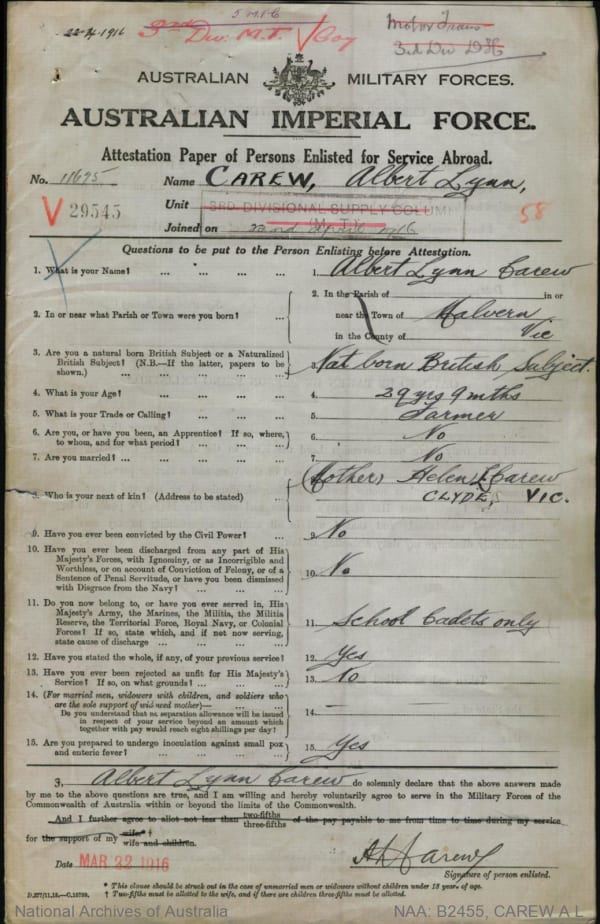 5 M.T.C
22-4-1916 3rd Div. M.T. Coy
Motor Trans
3rd Div D H
AUSTRALIAN MILITARY FORCES.
AUSTRALIAN IMPERIAL FORCE.
Attestation Paper of Persons Enlisted for Service Abroad.
No. 11695 Name CAREW, Albert Lynn,
V 29545 Unit 3RD DIVISIONAL SUPPLY COLUMN 58
(M.T.)
Joined on 22nd April 1916
Questions to be put to the Person Enlisting before Attestation.
1. What is your Name? ... ... ... ... 1. Albert Lynn Carew
2. In or near what Parish or Town were you born? ... 2. In the Parish of in or
near the Town of Malvern
in the County of Vic
3. Are you a natural born British Subject or a Naturalized
British Subject? (N.B.—If the latter, papers to be
shown.) ... ... ... ... Nat born British Subject.
4. What is your Age? ... ... ... ... 4. 29 yrs 9 mths
5. What is your Trade or Calling? ... ... ... 5. Farmer
6. Are you, or have you been, an Apprentice? If so, where,
to whom, and for what period? ... ... ... 6. No
7. Are you married? ... ... ... ... ... 7. No
8. Who is your next of kin? (Address to be stated) ... (Mother) Helen Carew
CLYDE, VIC.
9. Have you ever been convicted by the Civil Power? ... 9. No
10. Have you ever been discharged from any part of His
Majesty's Forces, with Ignominy, or as Incorrigible and
Worthless, or on account of Conviction of Felony, or of a
Sentence of Penal Servitude, or have you been dismissed
with Disgrace from the Navy? ... ... ... 10. No
11. Do you now belong to, or have you ever served in, His
Majesty's Army, the Marines, the Militia, the Militia
Reserve, the Territorial Force, Royal Navy, or Colonial
Forces? If so, state which, and if not now serving,
state cause of discharge ... ... ... ... 11. School Cadets only
12. Have you stated the whole, if any, of your previous service? 12. Yes
13. Have you ever been rejected as unfit for His Majesty's
Service? If so, on what grounds? ... ... ... 13. No
14. (For married men, widowers with children, and soldiers who
are the sole support of widowed mother)—
Do you understand that no separation allowance will be issued
in respect of your service beyond an amount which
together with pay would reach eight shillings per day? 14. —
15. Are you prepared to undergo inoculation against small pox
and enteric fever? ... ... ... ... 15. Yes
I, Albert Lynn Carew do solemnly declare that the above answers made
by me to the above questions are true, and I am willing and hereby voluntarily agree to serve in the Military Forces of the
Commonwealth of Australia within or beyond the limits of the Commonwealth.
And I further agree to allot not less than two-fifths three-fifths of the pay payable to me from time to time during my service
for the support of my wife* wife and children. †
Date MAR 22 1916 A L Carew
Signature of person enlisted.
* This clause should be struck out in the case of unmarried men or widowers without children under 18 year. of age.
† Two-fifths must be allotted to the wife, and if there are children three-fifths must be allotted.
National Archives of Australia NAA: B2455, CAREW A L